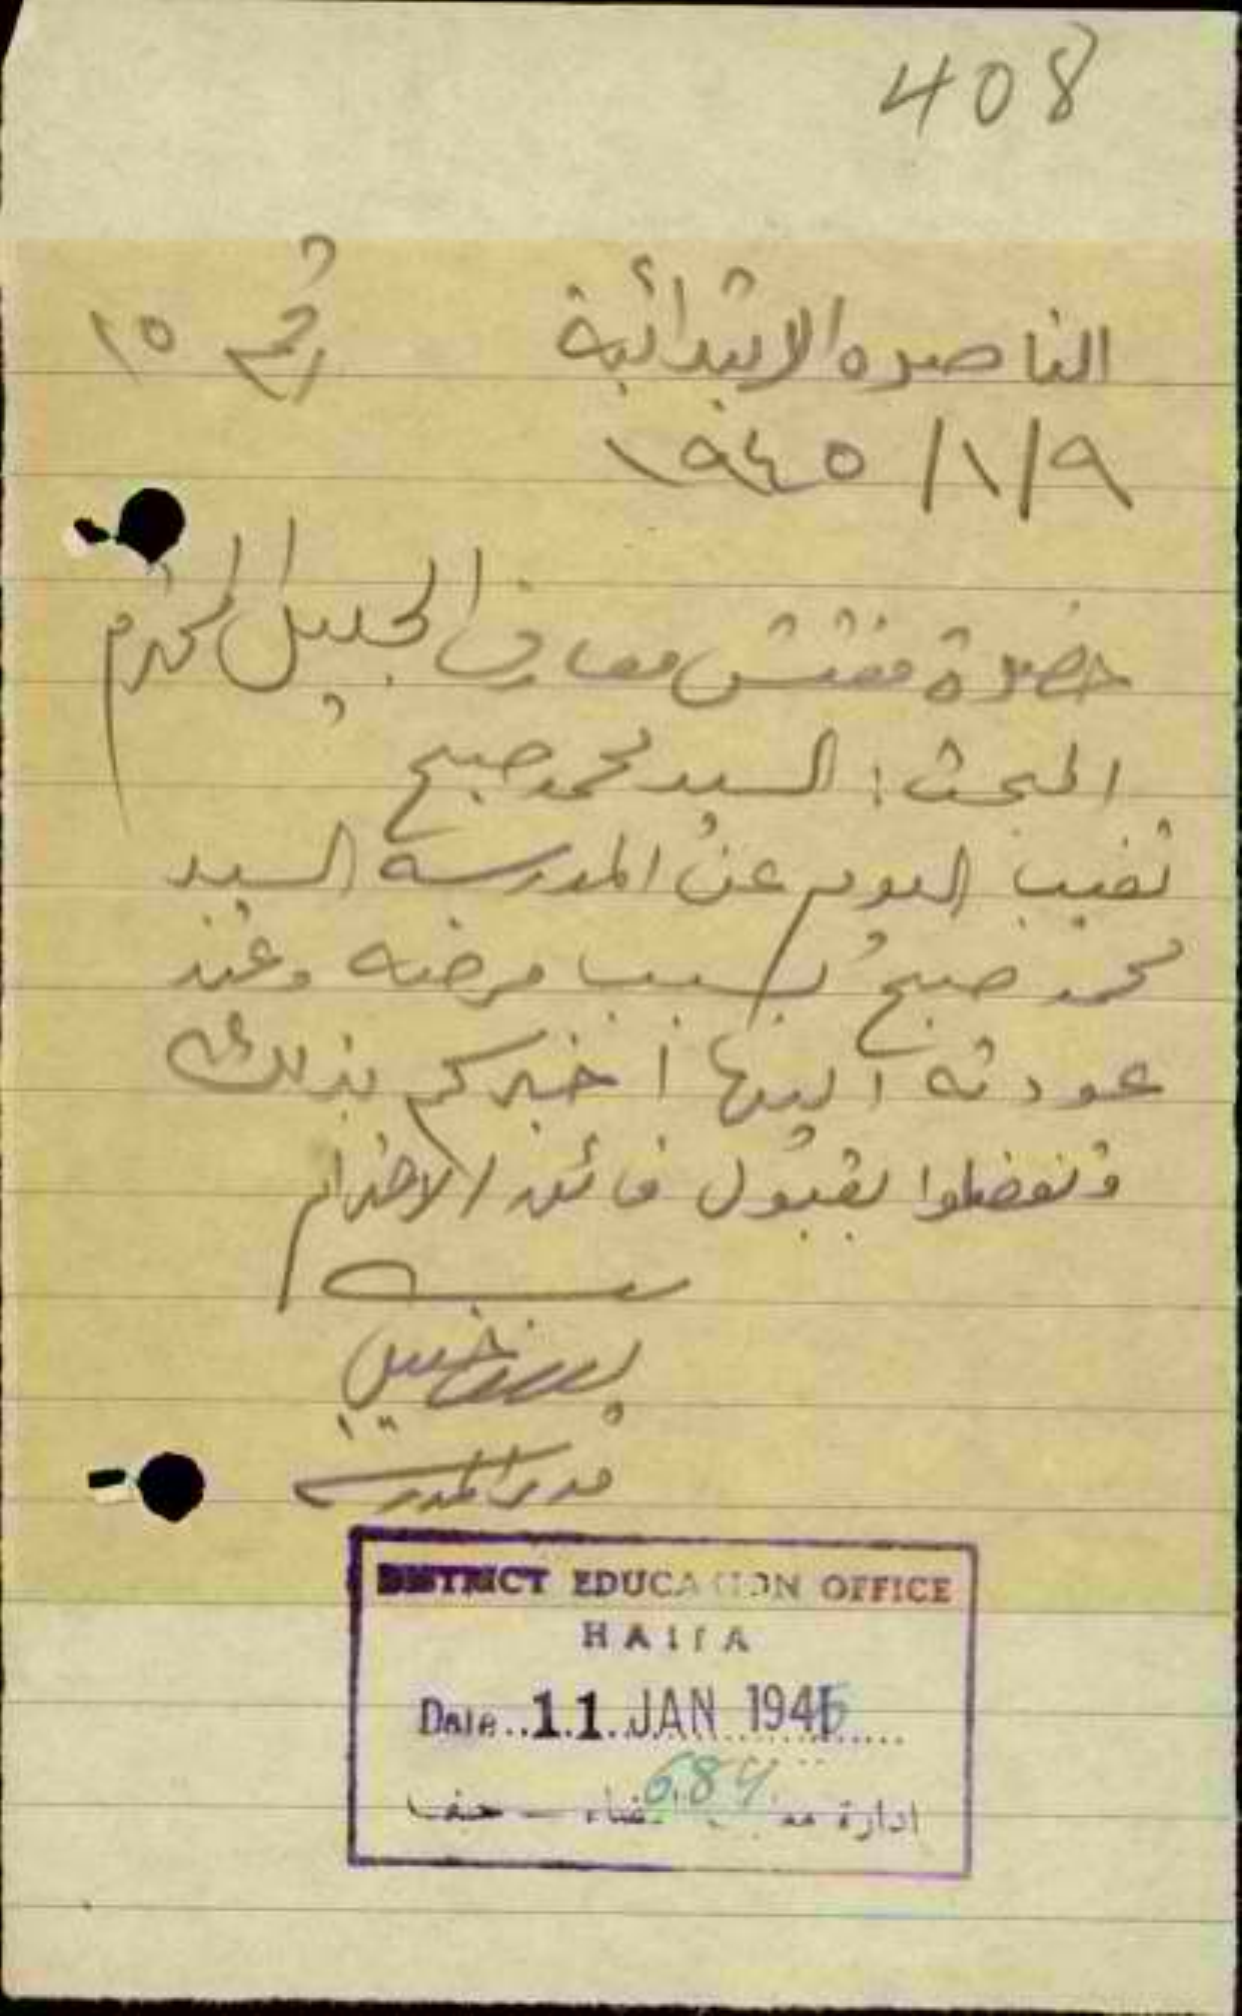 408
الناصره الابتدائية رقم ١٥
٩/١/١٩٤٥
حضرة مفتش معارف الجليل المحترم
المبحث: السيد محمد صبح
تغيب اليوم عن المدرسه السيد
محمد صبح بسبب مرضه وعند
عودته اليها اخبركم بذلك
وتفضلوا بقبول فائق الاحترام
مدير المدرسه
DISTRICT EDUCATION OFFICE
HAIFA
Date..11 JAN 1945
684
ادارة قضاء - حيفا